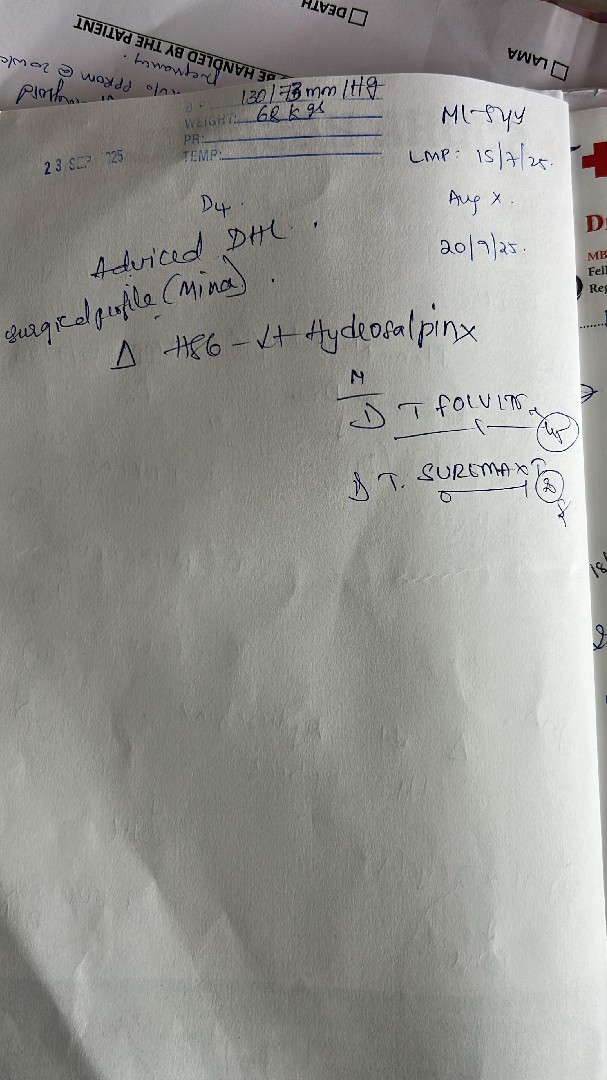 DEATH
LAMA
BE HANDLED BY THE PATIENT
pregnancy.
130/73 mm/Hg
WEIGHT: 68 kgs
PR:
TEMP:
23 SEP 2025
ML-8yy
LMP: 15/7/25.
Aug X.
20/9/25.
D4.
Adviced DHL.
surgical profile (Mina).
Δ HSG - Lt Hydrosalpinx
T FOLVITE
45
T. SUREMAX
MB
Fell
Reg